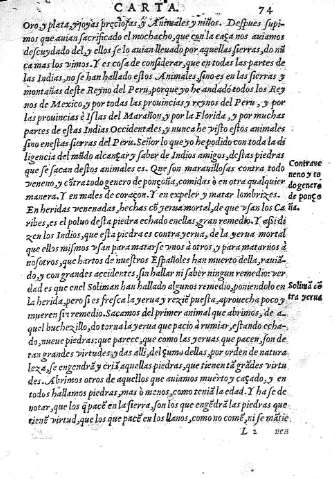 CARTA. 74
Oro, y plata, y joyas preciosas, y Animales y niños. Despues supi-
mos que auian sacrificado el mochacho, que con la caça nos auiamos
descuydado del, y ellos se lo auian lleuado por aquellas sierras, do nū
ca mas los vimos. Y es cosa de considerar, que en todas las partes de
las Indias, no se han hallado estos Animales, sino en las sierras y
montañas deste Reyno del Peru, porque yo he andado todos los Rey
nos de Mexico, y por todas las prouincias y reynos del Peru, y por
las prouincias è Islas del Marañon, y por la Florida, y por muchas
partes de estas Indias Occidentales, y nunca he visto estos animales
sino en estas sierras del Peru. Señor lo que yo he podido con toda la di
ligencia del mūdo alcançar y saber de Indios amigos, destas piedras
que se sacan destos animales es. Que son marauillosas contra todo
veneno, y cōtra todo genero de ponçoña, comidas ò en otra qualquier
manera. Y en males de coraçon. Y en expeler y matar lombrizes.
En heridas venenadas, hechas cō yerua mortal, de que vsan los Ca
ribes, es el poluo desta piedra echado en ellas, gran remedio. Y assi di
zen los Indios, que esta piedra es contra yerua, de la yerua mortal
que ellos mismos vsan para matarse vnos à otros, y para matarnos à
nosotros, que hartos de nuestros Españoles han muerto della, rauiā-
do, y con grandes accidentes, sin hallar ni saber ningun remedio: ver
dad es que en el Soliman han hallado algunos remedio, poniendolo en
la herida, pero si es fresca la yerua y reziē puesta, aprouecha poco y
mueren sin remedio. Sacamos del primer animal que abrimos, de a-
quel buchezillo, do torna la yerua que pacio à rumiar, estando echa-
do, nueue piedras: que parece, que como las yeruas que pacen, son de
tan grandes virtudes, y das alli, del çumo dellas, por orden de natura
leza, se engendrā y criā aquellas piedras, que tienen tā grādes virtu
des. Abrimos otros de aquellos que auiamos muerto y caçado, y en
todos hallamos piedras, mas ò menos, como teniā la edad. Y ha se de
notar, que los q̄ pacē en la sierra, son los que engēdrā las piedras que
tienē virtud, que los que pacen en los llanos, como no comē, ni se mātiē
L 2 nen
Contraue
neno y to
do genero
de ponço
ña.
Solimā cō
tra yerua